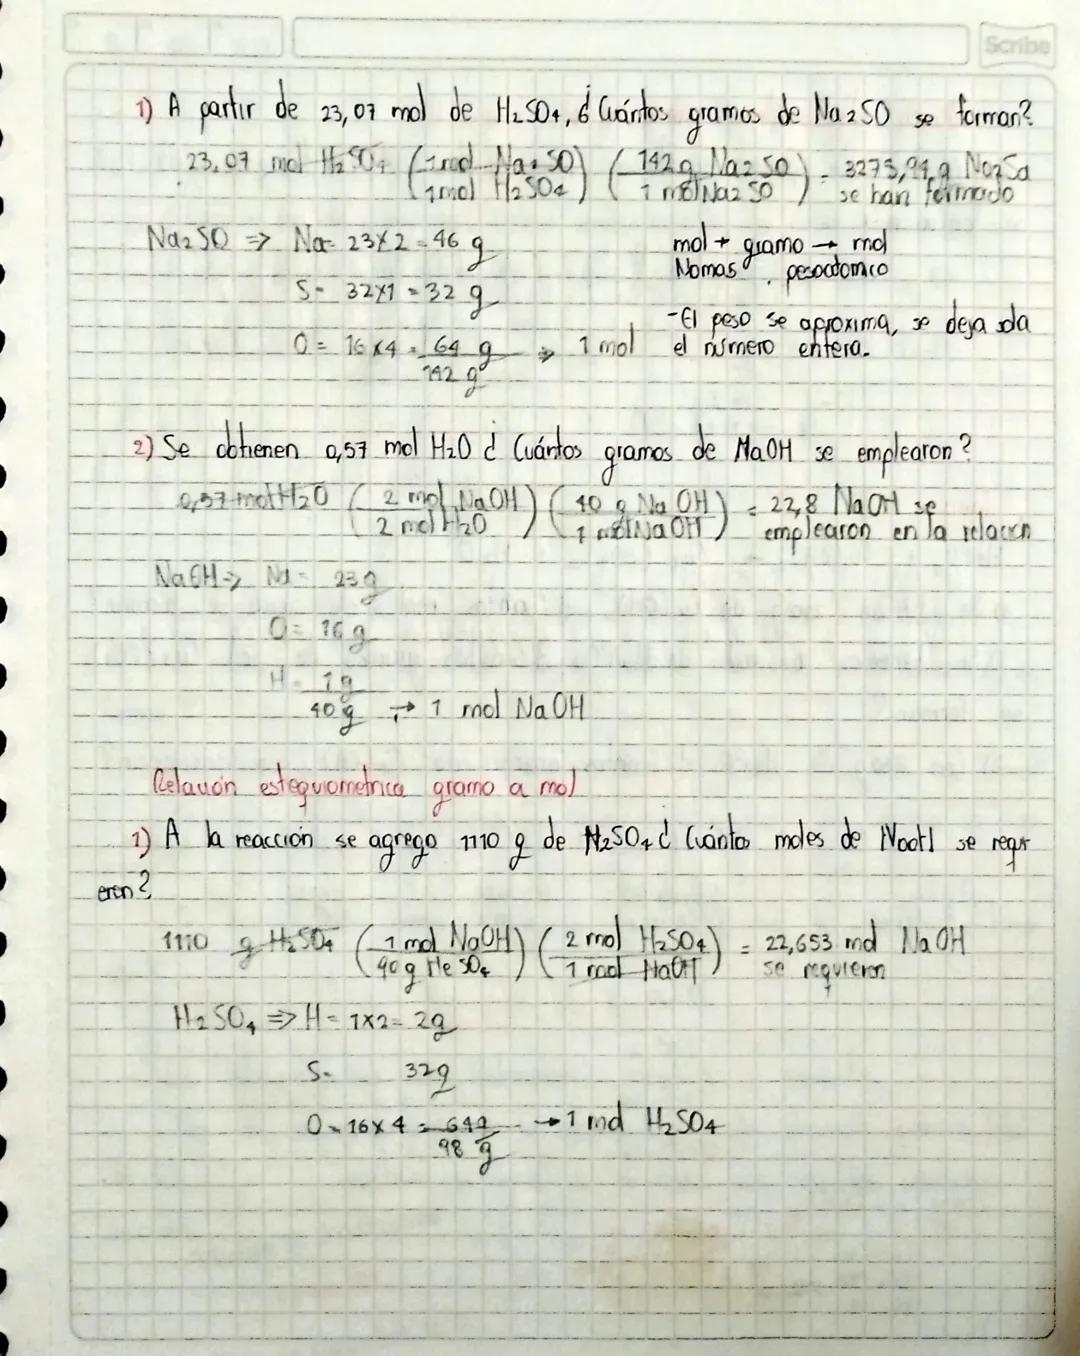 Scribe
1) A partir de 23,07 mol de H2SO4, ¿Cuántos gramos de Na2SO se forman?
23,07 mol H2SO4 (1 mol Na2SO / 1 mol H2SO4) (142 g Na2SO / 1 mol Na2SO) = 3273,94 g Na2So
se han formado
Na2SO ⇒ Na= 23x2 = 46 g
mol + gramo → mol
Nomas pesoatomico
S= 32x1 = 32 g
-El peso se aproxima, se deja sola
O = 16x4 = 64 g ⇒ 1 mol el número entero.
142 g
2) Se obtienen 0,57 mol H2O ¿Cuántos gramos de NaOH se emplearon?
0,57 mol H2O (2 mol NaOH / 2 mol H2O) (40 g NaOH / 1 mol NaOH) = 22,8 NaOH se
emplearon en la relación
NaOH → Na = 23 g
O = 16 g
H = 1 g
40 g → 1 mol NaOH
Relación estequiometrica gramo a mol
1) A la reacción se agrego 1110 g de H2SO4 ¿Cuántos moles de NaOH se requi
eren?
1110 g H2SO4 (1 mol NaOH / 90 g He SO4) (2 mol H2SO4 / 1 mol NaOH) = 22,653 mol NaOH
se requieren
H2SO4 ⇒ H = 1x2 = 2g
S= 32g
O = 16x4 = 64g → 1 mol H2SO4
98 g